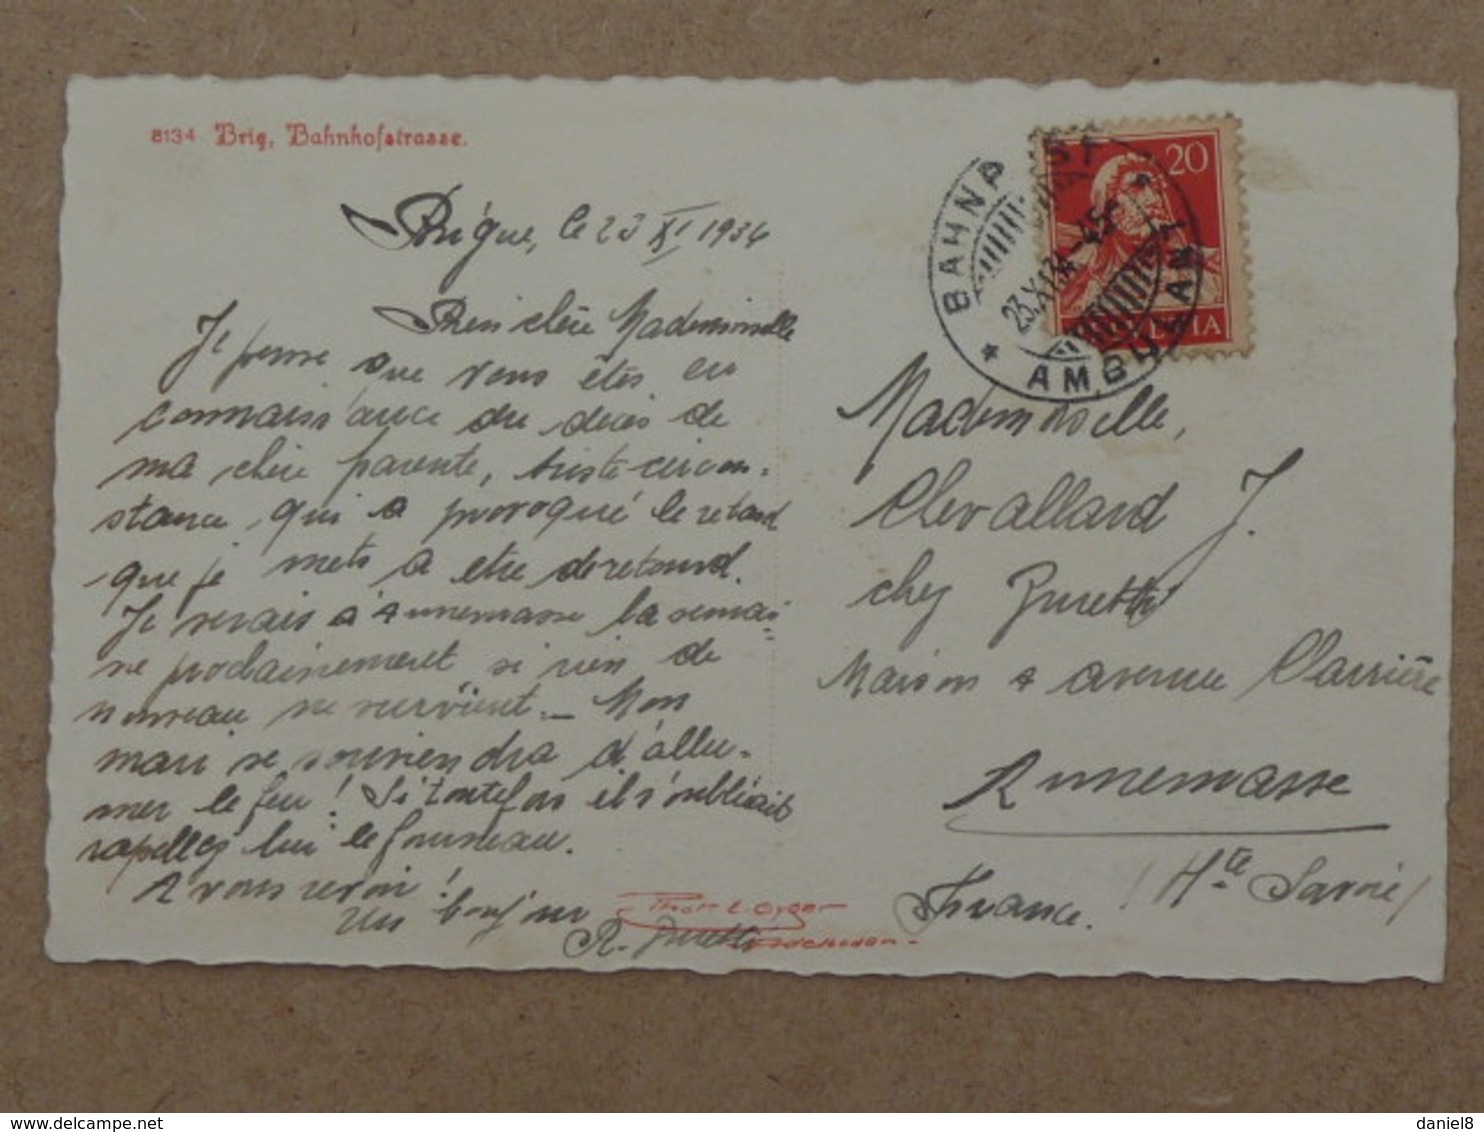 8134 Brig, Bahnhofstrasse.
Brigue, le 23 XI 1934
Bien chère Mademoiselle
Je pense que vous êtes en
connaissance du décès de
ma chère parente, triste circon-
stance, qui a provoqué le retard
que je mets à etre de retourd.
Je serais à Annemasse la semai-
ne prochainement, si rien de
nouveau ne survient. _ Mon
mari se souviendra d'allu-
mer le feu! Si toutefois il s'oubliait
rapellez lui le fourneau.
A vous revoir!
Un bonjour
R. Zuretti
BAHNPOST
AMBULANT
23.XI.34
20
HELVETIA
Mademoiselle,
Chevallard J.
chez Zuretti
Maison 4 avenue Clarrière
Annemasse
France. (Hte Savoie)
Phot. E. Gyger
Adelboden.
daniel8